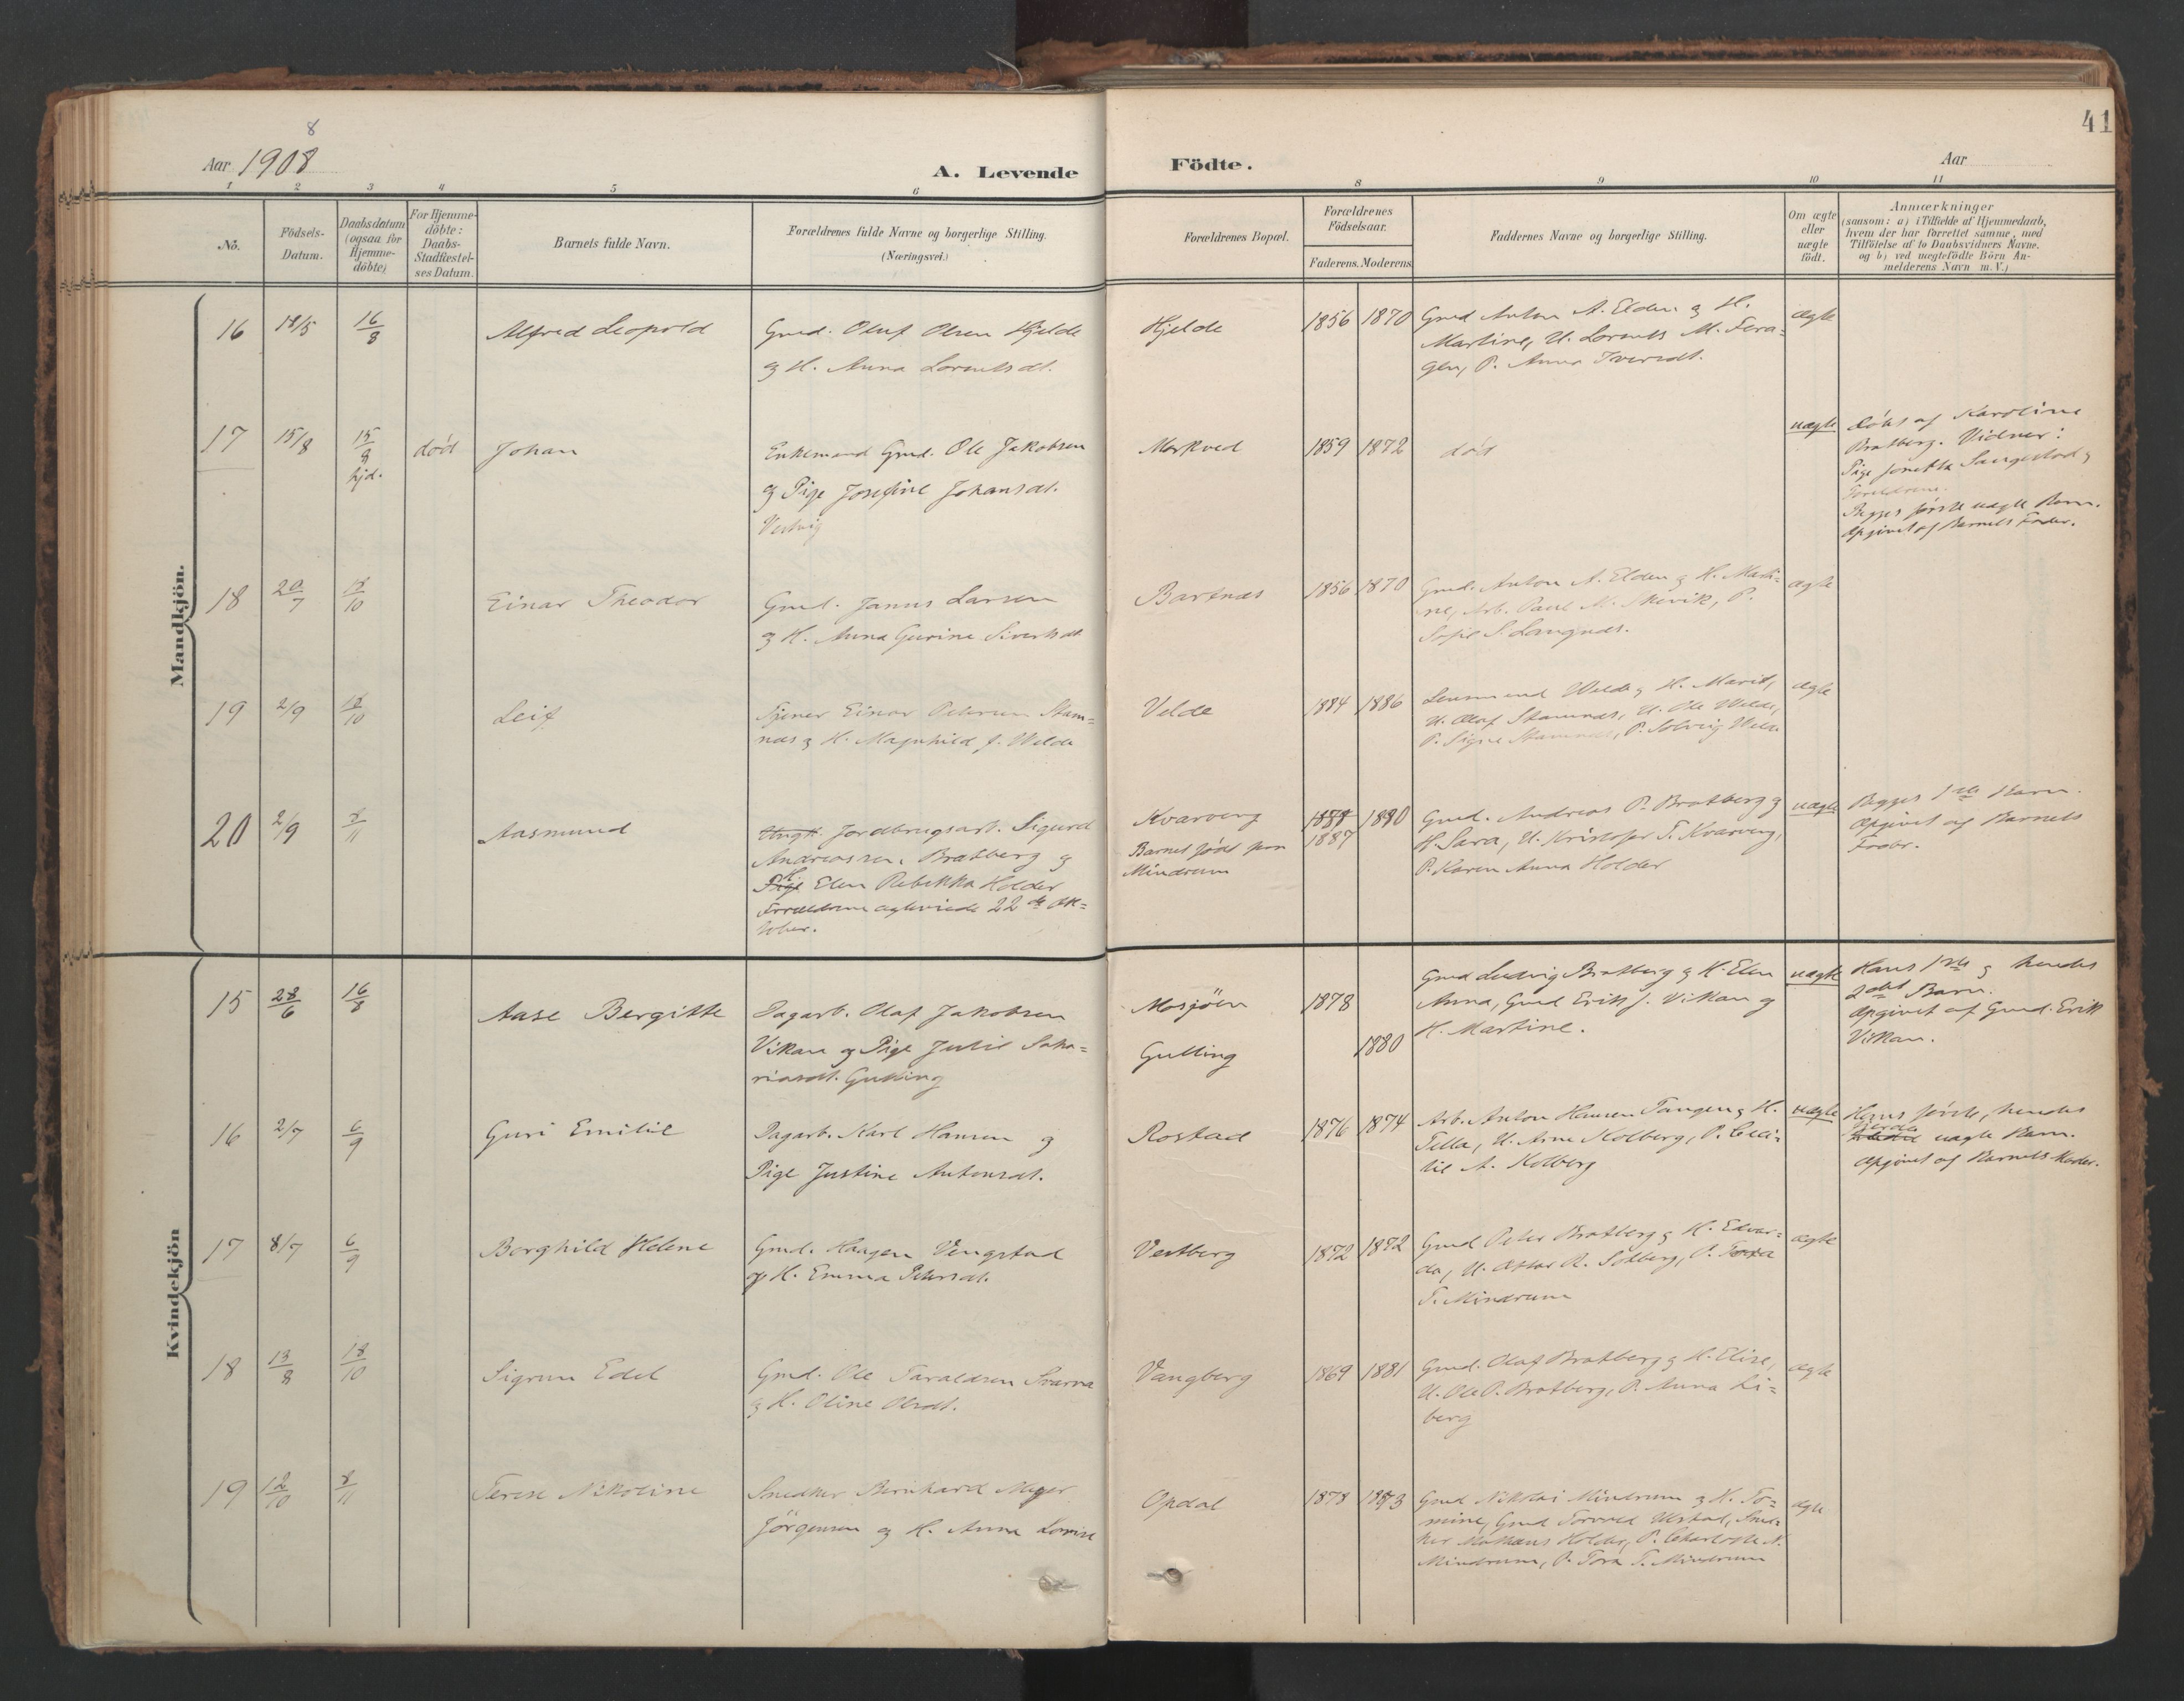 41
8
Aar 1908
A. Levende
Födte.
Aar
1 2 3 4 5 6 8 9 10 11
No.
Födsels-
Datum.
Daabsdatum
(ogsaa for
Hjemme-
döbte)
For Hjemme-
döbte:
Daabs-
Stadfæstel-
ses Datum.
Barnets fulde Navn.
Forældrenes fulde Navne og borgerlige Stilling.
(Næringsvei.)
Forældrenes Bopæl.
Forældrenes
Födselsaar.
Faderens. Moderens.
Faddernes Navne og borgerlige Stilling.
Om ægte
eller
uægte
födt.
Anmærkninger
(saasom: a) i Tilfælde af Hjemmedaab,
hvem der har forrettet samme, med
Tilföielse af to Daabsvidners Navne.
og b) ved uægtefödte Börn An-
melderens Navn m.V.)
Mandkjön.
16 18/5 16/8 Alfred Leopold
Gmd. Oluf Olsen Hjelde
og H. Anna Lorentsdt.
Hjelde 1856 1870
Gmd Anton A. Elden og H.
Martine, U. Lorents M. Fera-
gen, P. Anna Iversdt.
ægte
17 15/8 15/8 hjd. död Johan
Enkemand Gmd. Ole Jakobsen
og Pige Josefine Johansdt.
Vestvig
Markved 1859 1872
död
uægte
döbt af Karoline
Bratberg. Vidner:
Pige Jonetta Saugestad og
Forældrene.
Begges förste uægte Barn.
Opgivet af Barnets Fader.
18 20/7 18/10 Einar Theodor
Gmd. Janus Larsen
og H. Anna Gurine Sivertsdt
Bartnes 1856 1870
Gmd. Anton A. Elden og H. Marti-
ne, Arb. Paul M. Skevik, P.
Sofie S. Langnes.
ægte
19 2/9 18/10 Leif
Tjener Einar Petersen Stam-
nes og H. Magnhild J. Welde
Velde 1884 1886
Lensmand Welde og H. Marit,
U. Olaf Stamnes, U. Ole Welde,
P. Signe Stamnes, P. Solveig Welde
ægte
20 2/9 8/11 Aasmund
Jordbrugsarb. Sigurd
Andreassen Bratberg og
Pige H. Elen Rebekka Holder
Forældrene ægteviede 22de Ok-
tober.
Kvarving
Barnet födt paa
Mindrum
1887 1880
Gmd. Andreas P. Bratberg og
H. Sara, U. Kristofer T. Kvarving,
P. Karen Anna Holder
uægte
Begges 1ste Barn.
Opgivet af Barnets
Fader.
Kvindekjön
15 28/6 16/8 Aase Bergitte
Dagarb. Olaf Jakobsen
Vikan og Pige Julie Saka-
riasdt. Gulling
Mosjöen 1878
Gulling 1880
Gmd Ludvig Bratberg og H. Elen
Anna, Gmd Erik J. Vikan og
H. Martine.
uægte
Hans 1ste og hendes
2det Barn.
Opgivet af Gmd. Erik
Vikan.
16 2/7 6/9 Guri Emilie
Dagarb. Karl Hansen og
Pige Justine Antonsdt.
Rostad 1876 1874
Arb. Anton Hansen Tangen og H.
Tella, U. Arne Kolberg, P. Ceci-
lie A. Kolberg
uægte
Hans förste, hendes
fjerde uægte Barn.
Opgivet af Barnets Moder.
17 8/7 6/9 Borghild Helene
Gmd. Haagen Vengstad
og H. Emma Petersdt.
Vestberg 1872 1872
Gmd Peter Bratberg og H. Edvar-
da, U. Oskar R. Solberg, P. Tora
T. Mindrum
ægte
18 13/8 18/10 Sigrun Edel
Gmd. Ole Taraldsen Svarva
og H. Oline Olsdt.
Vangberg 1869 1881
Gmd. Olaf Bratberg og H. Elise,
U. Ole O. Bratberg, P. Anna Li-
berg
ægte
19 12/10 8/11 Terese Nikoline
Snedker Bernhard Meyer
Jörgensen og H. Anna Lovise
Opdal 1878 1873
Gmd Nikolai Mindrum og H. To-
mine, Gmd Torvald Ulstad, Sned-
ker Matheus Holder, P. Charlotte N.
Mindrum, P. Tora T. Mindrum
ægte